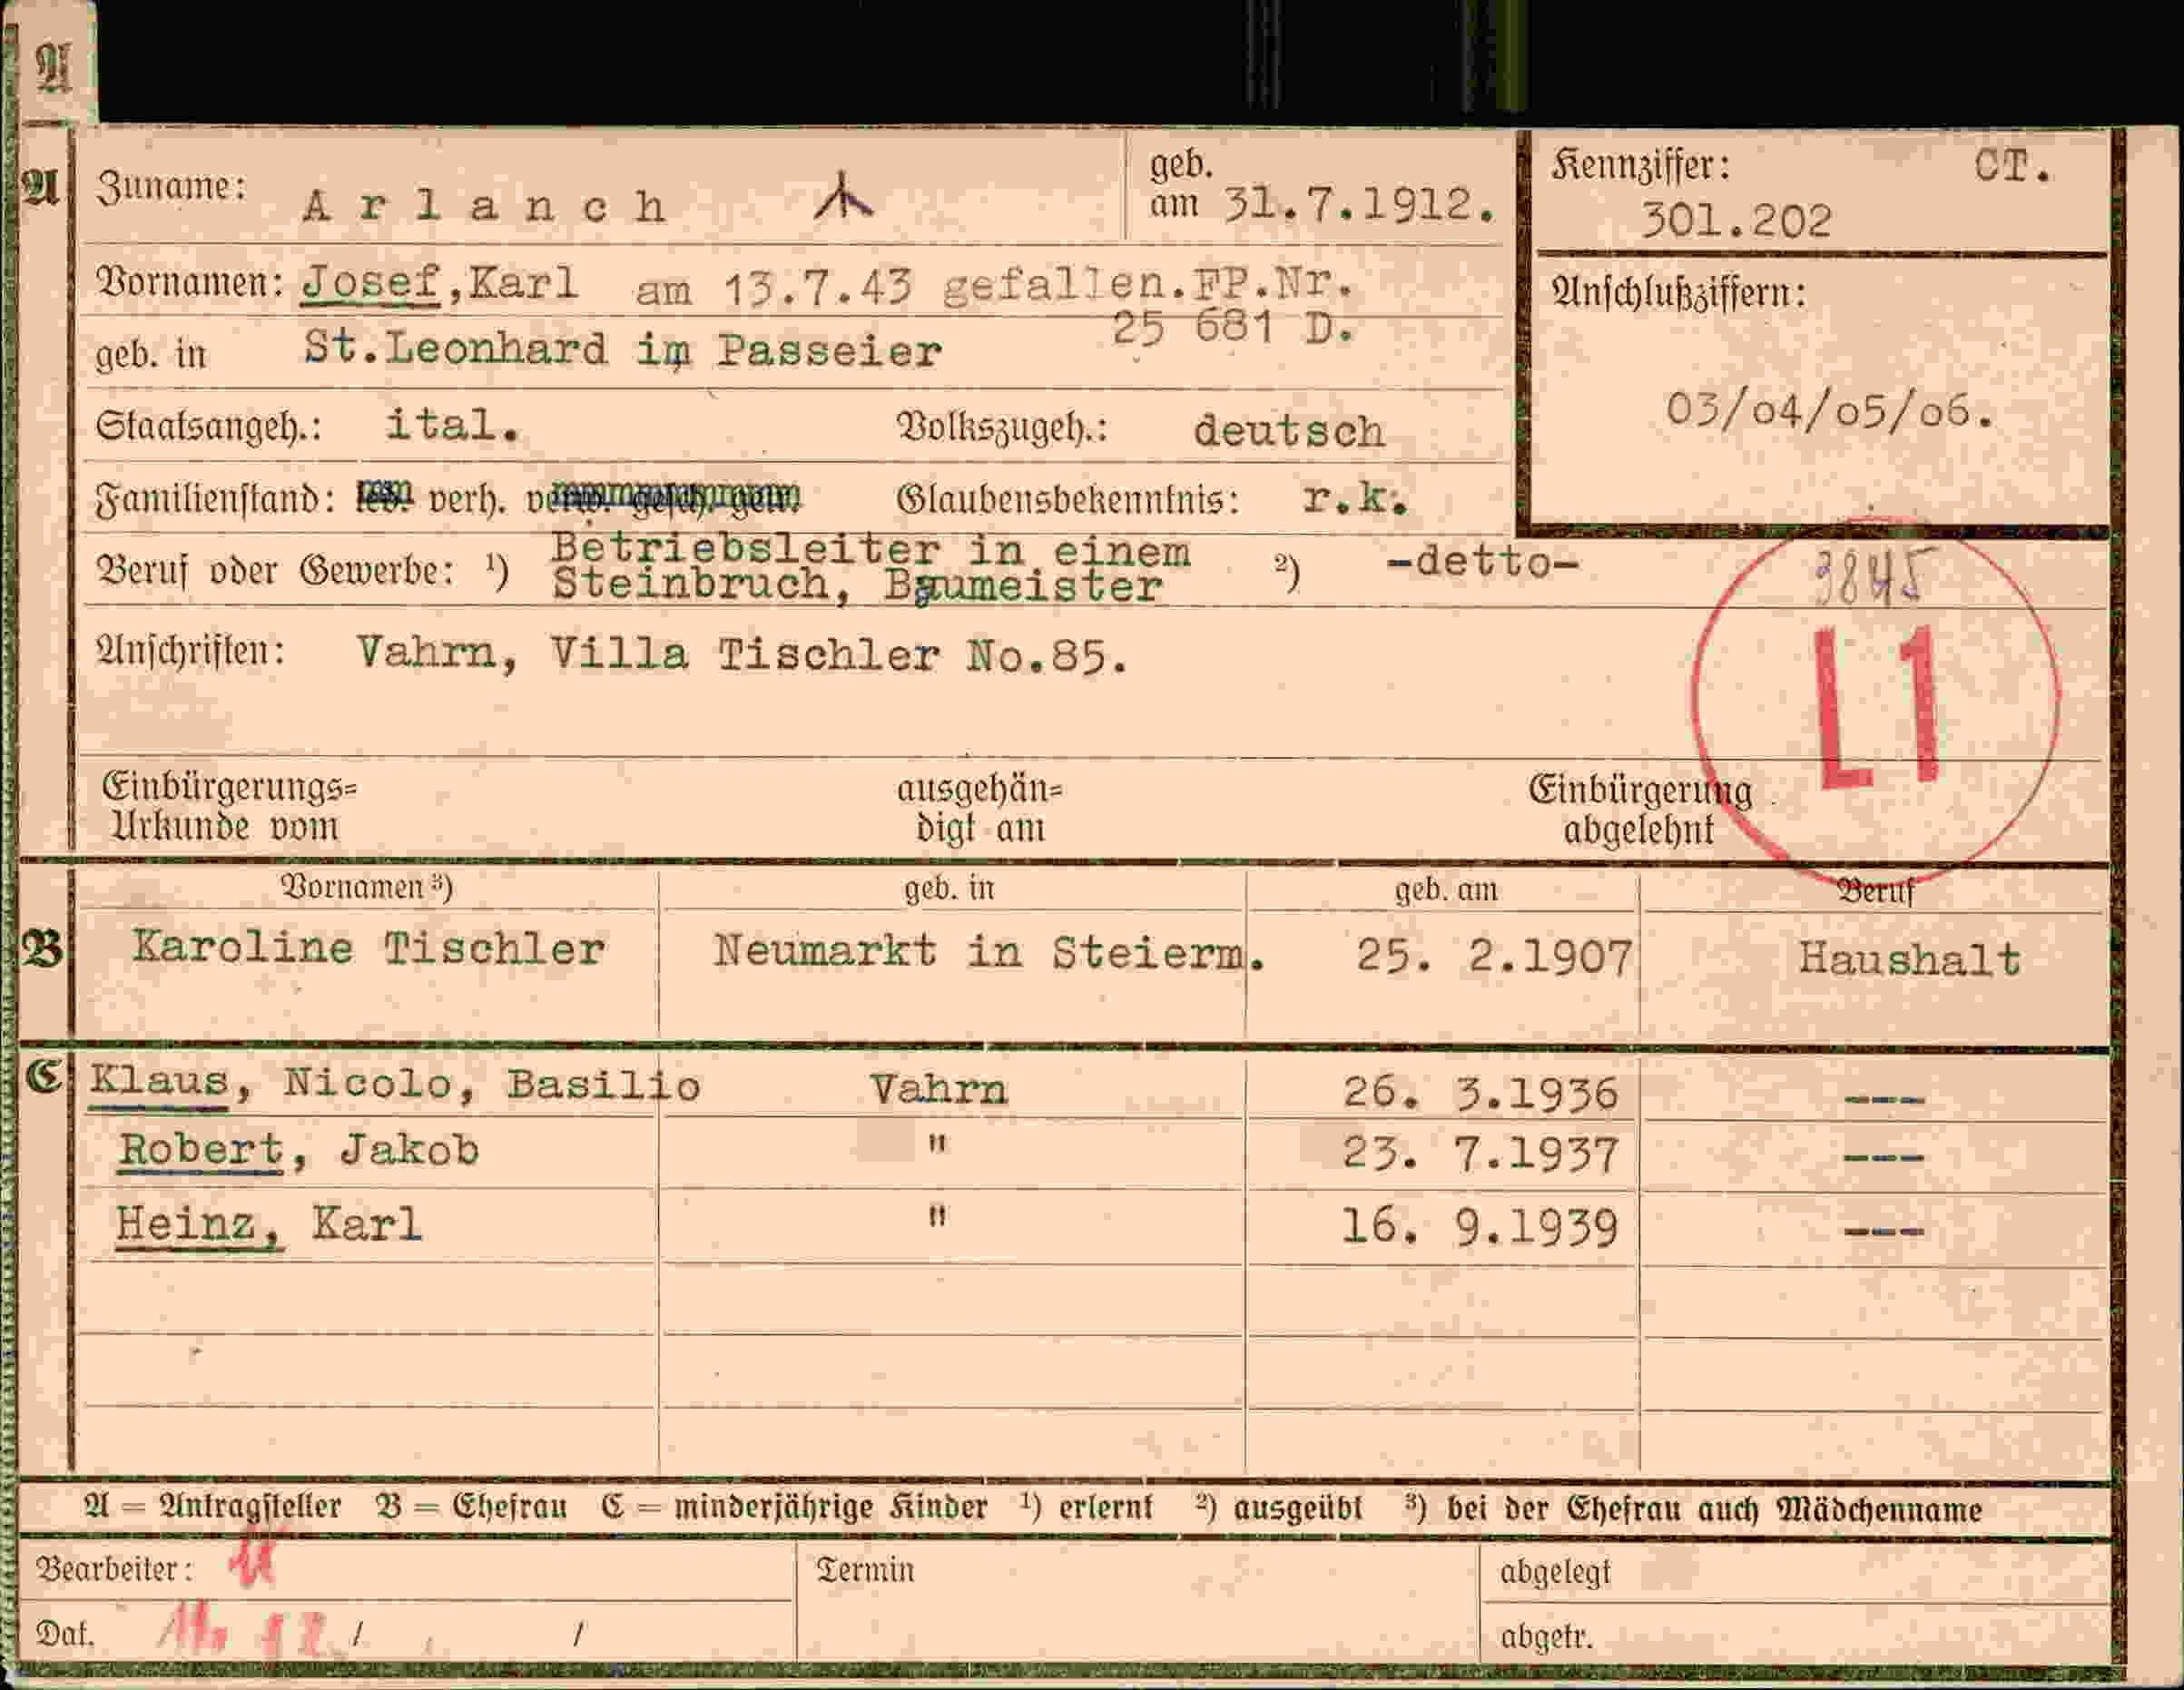 A
A Zuname: Arlanch geb. am 31.7.1912. Kennziffer: CT. 301.202
Vornamen: Josef,Karl am 13.7.43 gefallen.FP.Nr. 25 681 D. Anschlußziffern:
geb. in St.Leonhard im Passeier
03/o4/o5/o6.
Staatsangeh.: ital. Volkszugeh.: deutsch
Familienstand: verh. Glaubensbekenntnis: r.k.
Beruf oder Gewerbe: ¹) Betriebsleiter in einem Steinbruch, Baumeister ²) -detto-
3845
Anschriften: Vahrn, Villa Tischler No.85.
L1
Einbürgerungs= ausgehän= Einbürgerung
Urkunde vom digt am abgelehnt
Vornamen ³) geb. in geb. am Beruf
B Karoline Tischler Neumarkt in Steierm. 25. 2.1907 Haushalt
C Klaus, Nicolo, Basilio Vahrn 26. 3.1936 ---
Robert, Jakob " 23. 7.1937 ---
Heinz, Karl " 16. 9.1939 ---
A = Antragsteller B = Ehefrau C = minderjährige Kinder ¹) erlernt ²) ausgeübt ³) bei der Ehefrau auch Mädchenname
Bearbeiter: Termin abgelegt
Dat. / / abgetr.